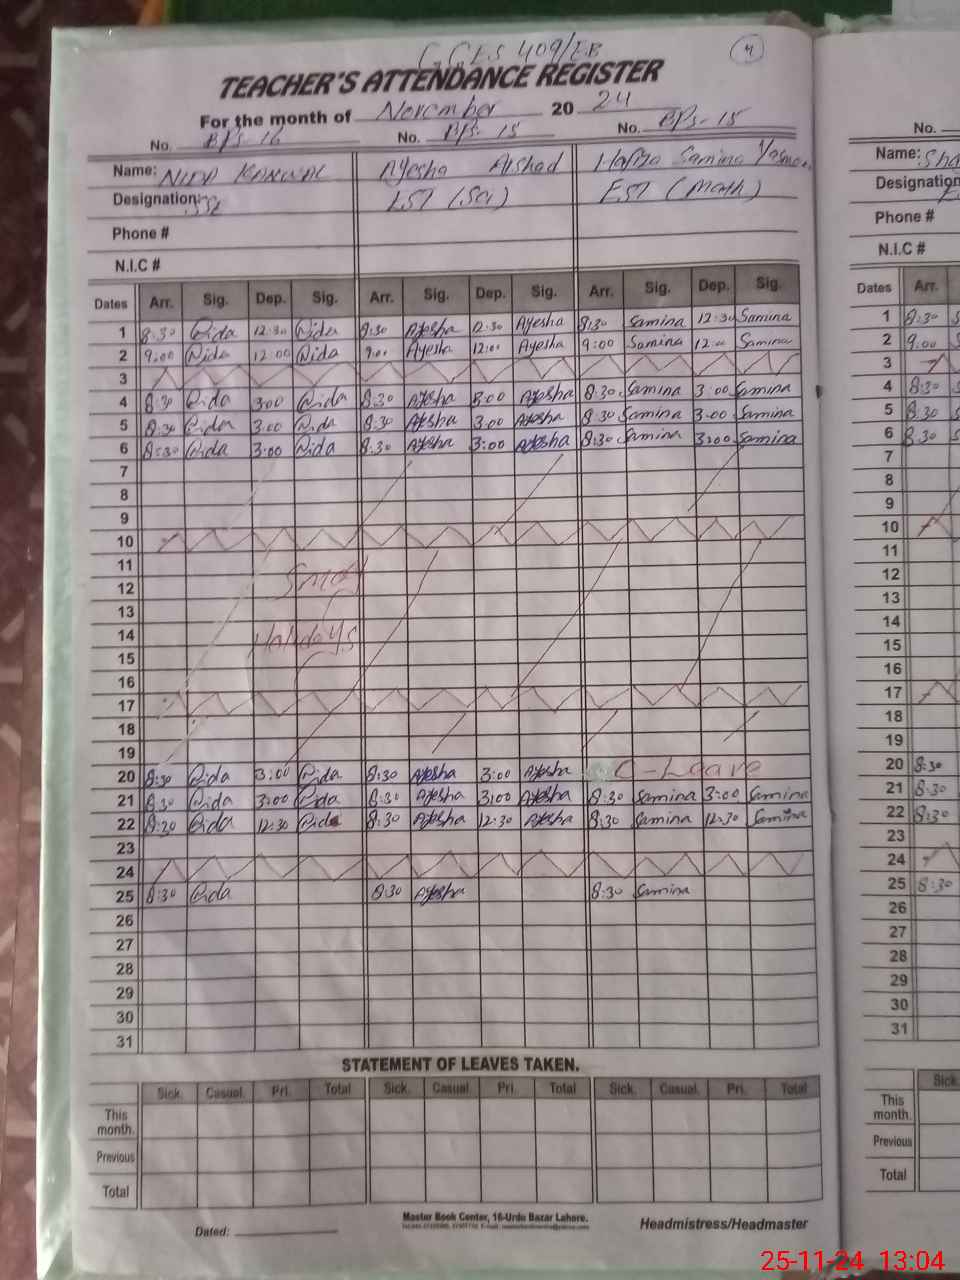 G.G.E.S 409/EB
4
TEACHER'S ATTENDANCE REGISTER
For the month of November 20 24
No. BPS-16 No. BPS-15 No. BPS-15
Name: NIDA KANWAL Ayesha Arshad Hafiza Samina Yasmeen
Designation: SSE EST (Sci) EST (Math)
Phone #
N.I.C #
Dates Arr. Sig. Dep. Sig. Arr. Sig. Dep. Sig. Arr. Sig. Dep. Sig.
1 8:30 Nida 12:30 Nida 8:30 Ayesha 12:30 Ayesha 8:30 Samina 12:30 Samina
2 9:00 Nida 12:00 Nida 9:00 Ayesha 12:00 Ayesha 9:00 Samina 12:00 Samina
3
4 8:30 Nida 3:00 Nida 8:30 Ayesha 3:00 Ayesha 8:30 Samina 3:00 Samina
5 8:30 Nida 3:00 Nida 8:30 Ayesha 3:00 Ayesha 8:30 Samina 3:00 Samina
6 8:30 Nida 3:00 Nida 8:30 Ayesha 3:00 Ayesha 8:30 Samina 3:00 Samina
7
8
9
10
11 Smog
12
13
14 Holidays
15
16
17
18
19
20 8:30 Nida 3:00 Nida 8:30 Ayesha 3:00 Ayesha C-Leave
21 8:30 Nida 3:00 Nida 8:30 Ayesha 3:00 Ayesha 8:30 Samina 3:00 Samina
22 8:30 Nida 12:30 Nida 8:30 Ayesha 12:30 Ayesha 8:30 Samina 12:30 Samina
23
24
25 8:30 Nida 8:30 Ayesha 8:30 Samina
26
27
28
29
30
31
STATEMENT OF LEAVES TAKEN.
Sick. Casual. Pri. Total Sick. Casual. Pri. Total Sick. Casual. Pri. Total
This month.
Previous
Total
Dated:
Master Book Center, 16-Urdu Bazar Lahore.
Headmistress/Headmaster
No.
Name: Sha
Designation
Phone #
N.I.C #
Dates Arr.
1 8:30
2 9:00
3
4 8:30
5 8:30
6 8:30
7
8
9
10
11
12
13
14
15
16
17
18
19
20 8:30
21 8:30
22 8:30
23
24
25 8:30
26
27
28
29
30
31
Sick
This month.
Previous
Total
25-11-24 13:04